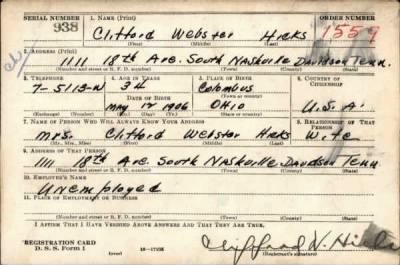 SERIAL NUMBER 1. NAME (Print) ORDER NUMBER
938 Clifford Webster Hicks 1559
(First) (Middle) (Last)
2. ADDRESS (Print)
1111 18th Ave. South Nashville Davidson Tenn.
(Number and street or R. F. D. number) (Town) (County) (State)
3. TELEPHONE 4. AGE IN YEARS 5. PLACE OF BIRTH 6. COUNTRY OF CITIZENSHIP
7-5113-W 34 Columbus
DATE OF BIRTH
May 12 1906 OHIO U.S.A.
(Exchange) (Number) (Mo.) (Day) (Yr.) (State or country)
7. NAME OF PERSON WHO WILL ALWAYS KNOW YOUR ADDRESS 8. RELATIONSHIP OF THAT PERSON
Mrs. Clifford Webster Hicks Wife
(Mr., Mrs., Miss) (First) (Middle) (Last)
9. ADDRESS OF THAT PERSON
1111 18th Ave. South Nashville Davidson Tenn
(Number and street or R. F. D. number) (Town) (County) (State)
10. EMPLOYER'S NAME
Unemployed
11. PLACE OF EMPLOYMENT OR BUSINESS
(Number and street or R. F. D. number) (Town) (County) (State)
I AFFIRM THAT I HAVE VERIFIED ABOVE ANSWERS AND THAT THEY ARE TRUE.
REGISTRATION CARD
D. S. S. Form 1 (over) 16-17105 (Registrant's signature)